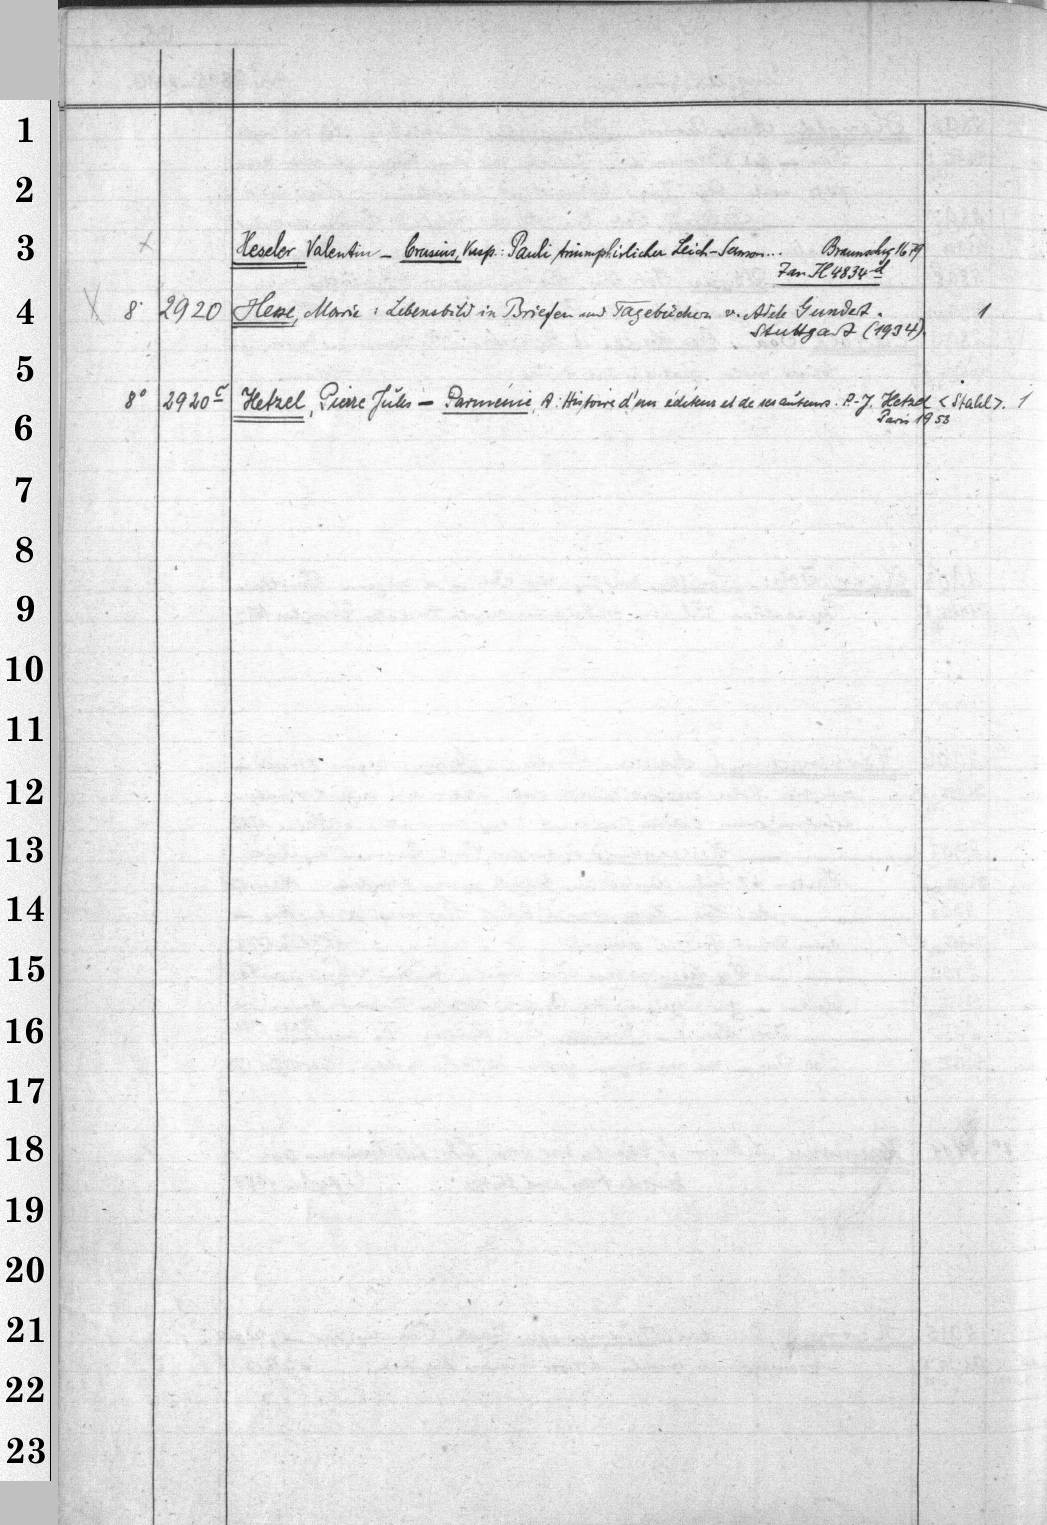 1
2
3 Heseler Valentin – Crusius, Kasp.: Pauli triumphirlicher Leich-Sermon... Braunschwg 1679
Z an H 4834 d
4 8° 2920 Hesse, Marie: Lebensbild in Briefen und Tagebüchern v. Adele Gundert. 1
Stuttgart (1934).
5
8° 2920 c Hetzel, Pierre Jules – Parménie, A: Histoire d'un éditeur et de ses auteurs. P.-J. Hetzel <Stahl>. 1
6 Paris 1953
7
8
9
10
11
12
13
14
15
16
17
18
19
20
21
22
23